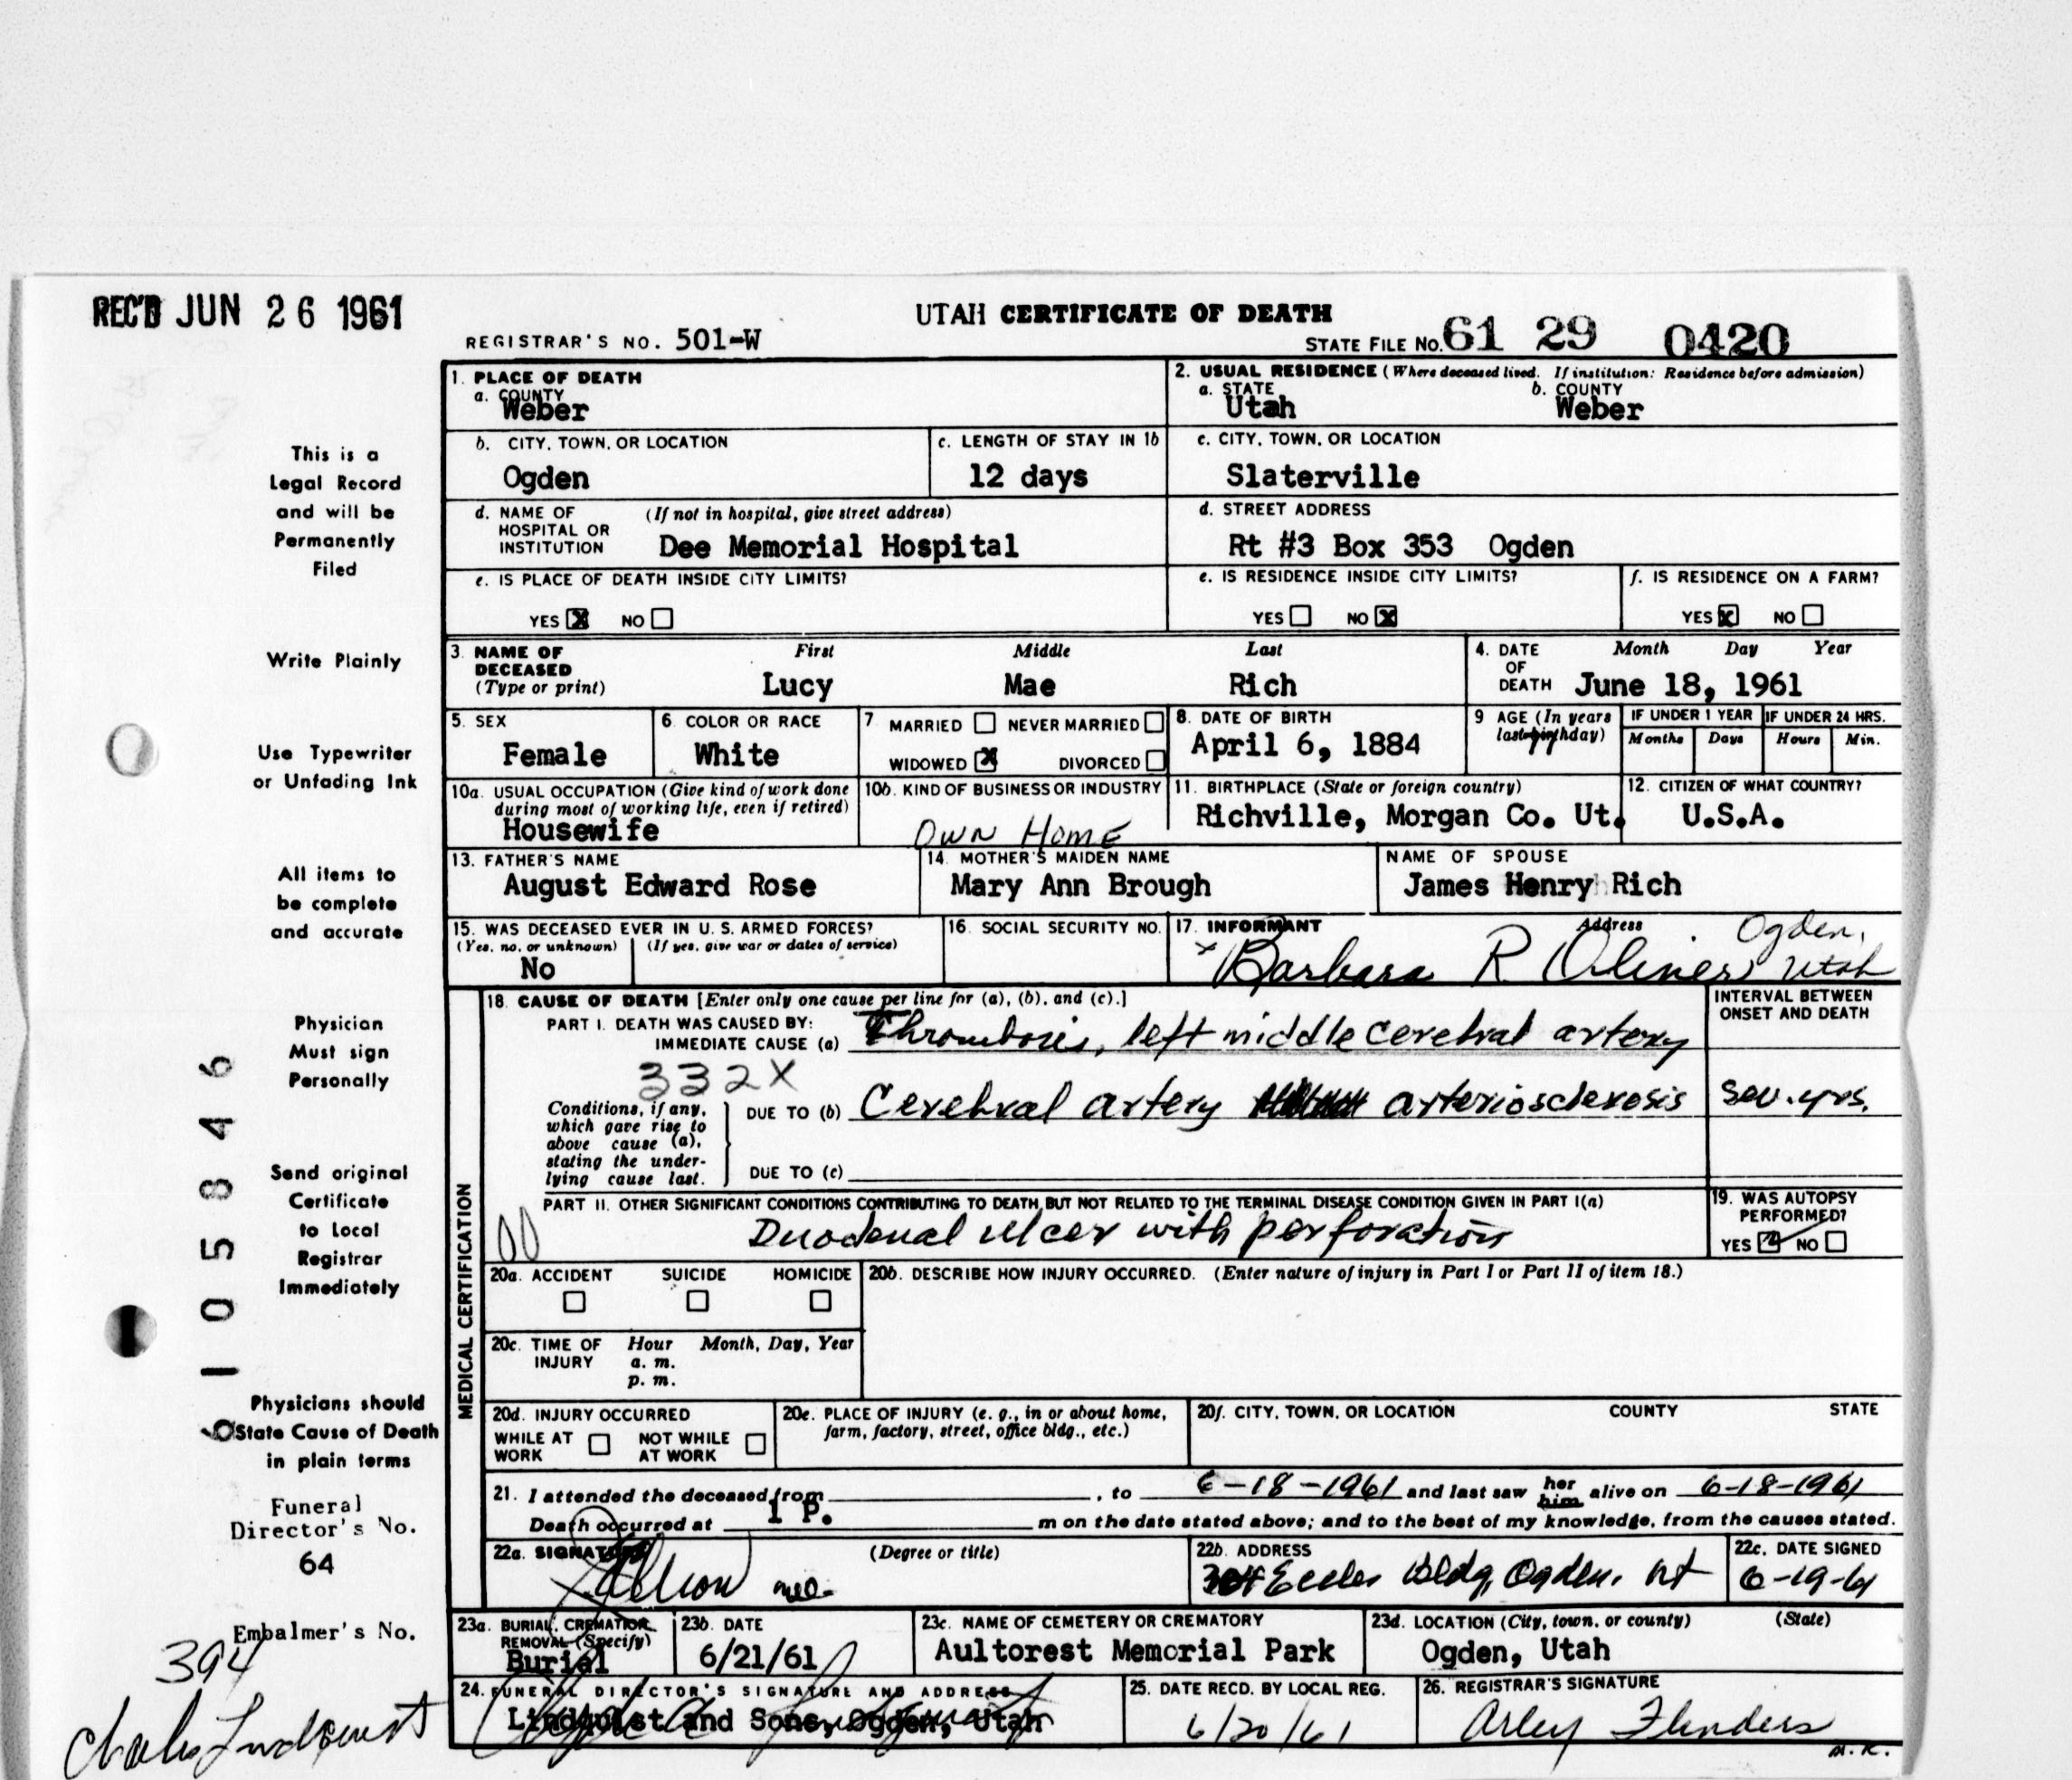 REC'D JUN 26 1961
UTAH CERTIFICATE OF DEATH
REGISTRAR'S NO. 501-W
STATE FILE No. 61 29 0420
This is a
Legal Record
and will be
Permanently
Filed
Write Plainly
Use Typewriter
or Unfading Ink
All items to
be complete
and accurate
Physician
Must sign
Personally
Send original
Certificate
to Local
Registrar
Immediately
Physicians should
State Cause of Death
in plain terms
Funeral
Director's No.
64
Embalmer's No.
394
Charles Lindquist
105846
1. PLACE OF DEATH
a. COUNTY
Weber
2. USUAL RESIDENCE (Where deceased lived. If institution: Residence before admission)
a. STATE
Utah
b. COUNTY
Weber
b. CITY, TOWN, OR LOCATION
Ogden
c. LENGTH OF STAY IN 1b
12 days
c. CITY, TOWN, OR LOCATION
Slaterville
d. NAME OF HOSPITAL OR INSTITUTION
(If not in hospital, give street address)
Dee Memorial Hospital
d. STREET ADDRESS
Rt #3 Box 353 Ogden
e. IS PLACE OF DEATH INSIDE CITY LIMITS?
YES X NO
e. IS RESIDENCE INSIDE CITY LIMITS?
YES NO X
f. IS RESIDENCE ON A FARM?
YES X NO
3. NAME OF DECEASED
(Type or print)
First Middle Last
Lucy Mae Rich
4. DATE OF DEATH
Month Day Year
June 18, 1961
5. SEX
Female
6. COLOR OR RACE
White
7. MARRIED NEVER MARRIED
WIDOWED X DIVORCED
8. DATE OF BIRTH
April 6, 1884
9 AGE (In years last birthday)
77
IF UNDER 1 YEAR
Months Days
IF UNDER 24 HRS.
Hours Min.
10a. USUAL OCCUPATION (Give kind of work done during most of working life, even if retired)
Housewife
10b. KIND OF BUSINESS OR INDUSTRY
OWN HOME
11. BIRTHPLACE (State or foreign country)
Richville, Morgan Co. Ut.
12. CITIZEN OF WHAT COUNTRY?
U.S.A.
13. FATHER'S NAME
August Edward Rose
14. MOTHER'S MAIDEN NAME
Mary Ann Brough
NAME OF SPOUSE
James Henry Rich
15. WAS DECEASED EVER IN U. S. ARMED FORCES?
(Yes, no, or unknown) (If yes, give war or dates of service)
No
16. SOCIAL SECURITY NO.
17. INFORMANT Address
x Barbara R Ogden, Utah
MEDICAL CERTIFICATION
18. CAUSE OF DEATH [Enter only one cause per line for (a), (b), and (c).]
INTERVAL BETWEEN ONSET AND DEATH
PART I. DEATH WAS CAUSED BY:
IMMEDIATE CAUSE (a) Thrombosis, left middle cerebral artery
332X
Conditions, if any, which gave rise to above cause (a), stating the underlying cause last.
DUE TO (b) Cerebral artery arteriosclerosis sev. yrs.
DUE TO (c)
PART II. OTHER SIGNIFICANT CONDITIONS CONTRIBUTING TO DEATH BUT NOT RELATED TO THE TERMINAL DISEASE CONDITION GIVEN IN PART I(a)
00 Duodenal ulcer with perforation
19. WAS AUTOPSY PERFORMED?
YES NO
20a. ACCIDENT SUICIDE HOMICIDE
20b. DESCRIBE HOW INJURY OCCURRED. (Enter nature of injury in Part I or Part II of item 18.)
20c. TIME OF INJURY
Hour Month, Day, Year
a. m.
p. m.
20d. INJURY OCCURRED
WHILE AT WORK NOT WHILE AT WORK
20e. PLACE OF INJURY (e. g., in or about home, farm, factory, street, office bldg., etc.)
20f. CITY, TOWN, OR LOCATION COUNTY STATE
21. I attended the deceased from , to 6-18-1961 and last saw her him alive on 6-18-1961
Death occurred at 1 P. m on the date stated above; and to the best of my knowledge, from the causes stated.
22a. SIGNATURE (Degree or title)
22b. ADDRESS
Eccles Bldg, Ogden, Ut
22c. DATE SIGNED
6-19-61
23a. BURIAL, CREMATION, REMOVAL (Specify)
Burial
23b. DATE
6/21/61
23c. NAME OF CEMETERY OR CREMATORY
Aultorest Memorial Park
23d. LOCATION (City, town, or county) (State)
Ogden, Utah
24. FUNERAL DIRECTOR'S SIGNATURE AND ADDRESS
Lindquist and Sons, Ogden, Utah
25. DATE RECD. BY LOCAL REG.
6/20/61
26. REGISTRAR'S SIGNATURE
Arley Flinders
M. K.